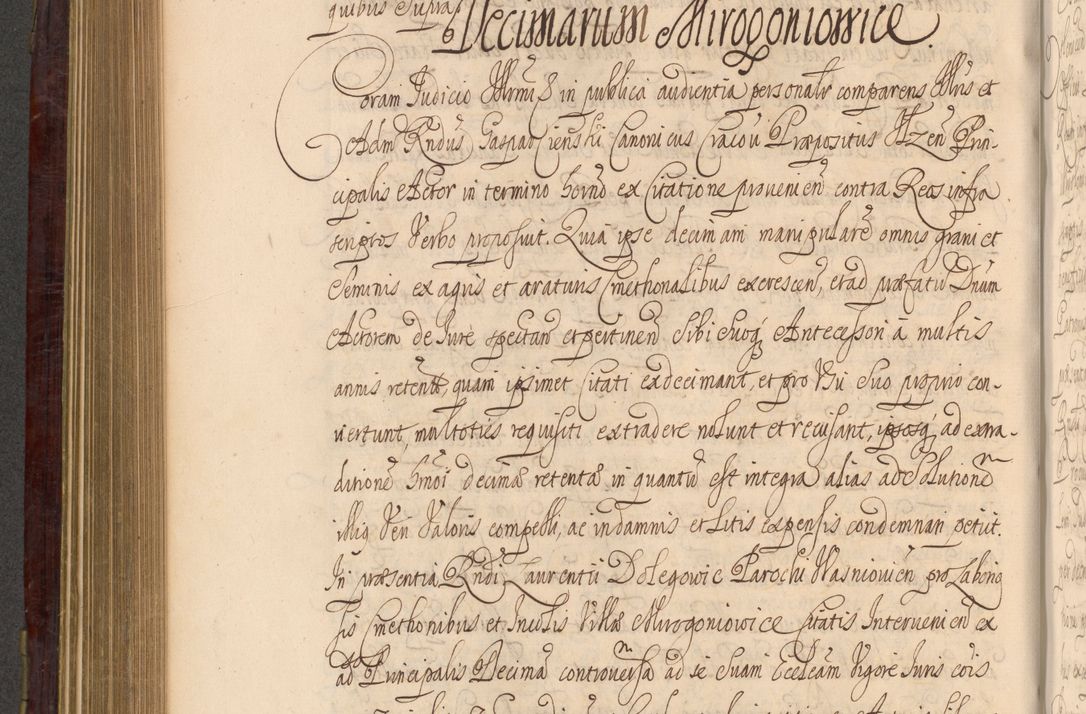 quibus Supra
Decimarum Mirogoniowice.
Coram Judicio Illrmi S in publica audientia personalr comparens Illris et
Adm Rndus Gaspar Cienski Canonicus Cracov Præpositus Ilzen Prin-
cipalis Actor in termino horno ex Citatione provenien contra Reos infra
scriptos Verbo proposuit. Quia ipse decimam manipularē omnis grani et
Seminis ex agris et araturis Cmethonalibus excrescen, et ad præfatū Dnum
Actorem de Jure spectan et pertinen Sibi Suoq Antecessori à multis
annis retentā, quam ipsimet Citati exdecimant, et pro Usu Suo proprio con-
vertunt, multoties requisiti extradere nolunt et recusant, ad extra-
ditionē hmoi decimæ retentæ in quantū est integra alias ad Solutionē
illiq Ven Valoris compelli, ac in damnis et Litis expensis condemnari petiit.
In præsentia Rndi Laurentii Dolegowic Parochi Wasniovien pro Laborio
sis Cmethonibus et Incolis Villæ Mirogoniowice Citatis Intervenien ex
ad Principalis Decimā controversā ad se Suam Ecclcam Vigore Juris cois